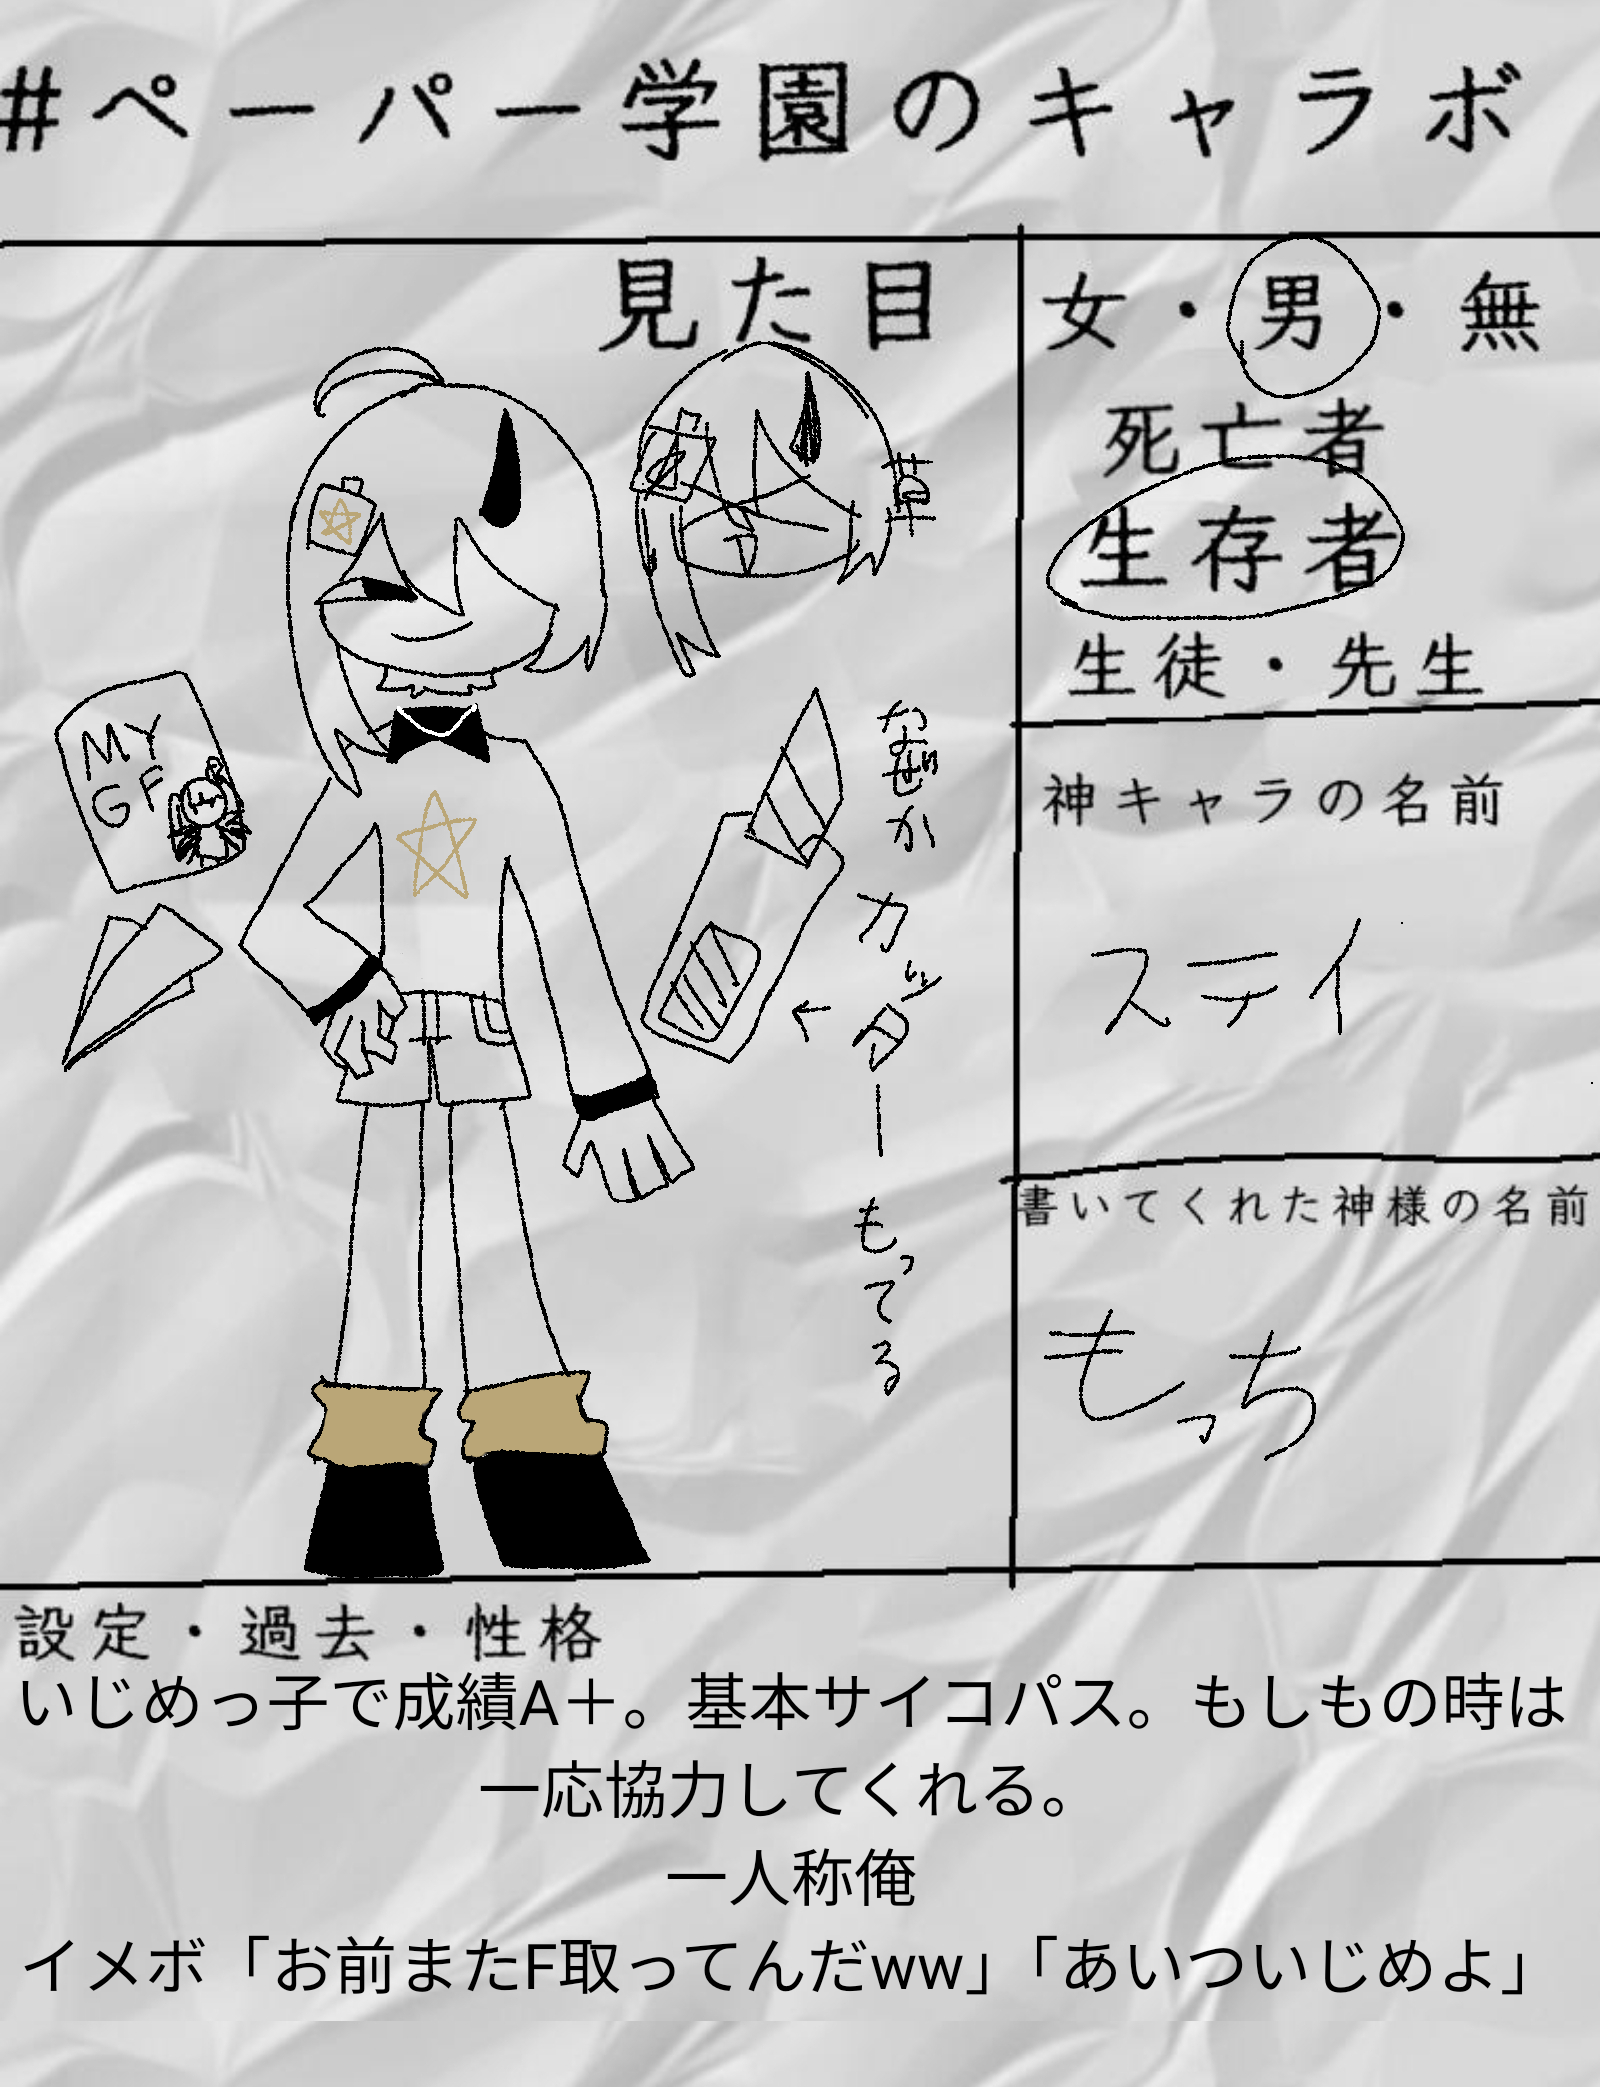 #ペーパー学園のキャラボ
見た目
女・男・無
死亡者
生存者
生徒・先生
神キャラの名前
ステイ
書いてくれた神様の名前
もっち
MY
GF
草
なぜか カッター もってる
←
設定・過去・性格
いじめっ子で成績A+。基本サイコパス。もしもの時は
一応協力してくれる。
一人称俺
イメボ「お前またF取ってんだww」「あいついじめよ」